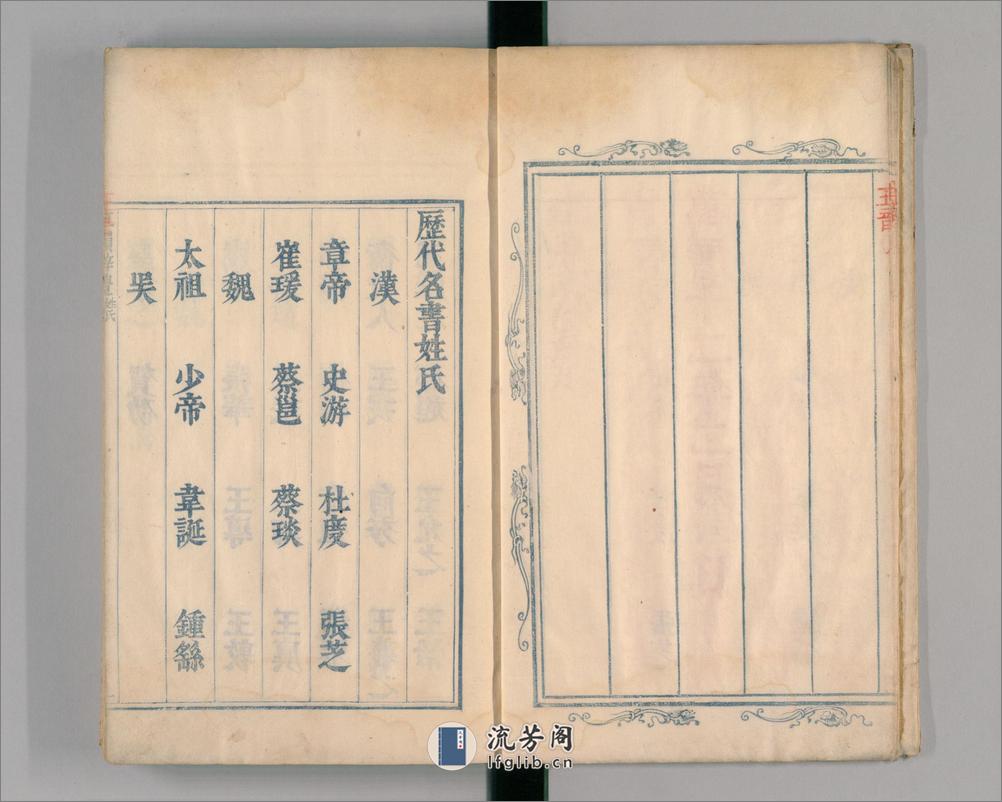 歷代名書姓氏
漢
章帝 史游 杜慶 張芝
崔瑗 蔡邕 蔡琰
魏
太祖 少帝 韋誕 鍾繇
吴
流芳阁
lfglib.cn